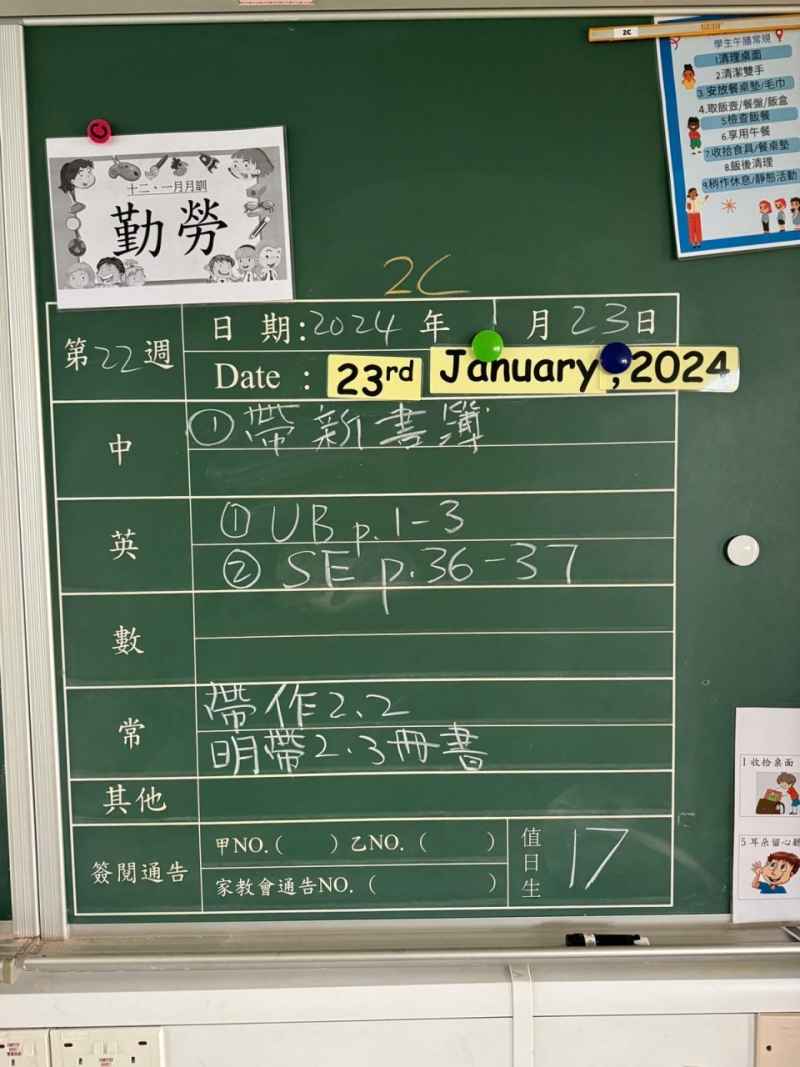 2C
學生午膳常規
1清理桌面
2.清潔雙手
3.安放餐桌墊/毛巾
4.取飯壺/餐盤/飯盒
5檢查飯餐
6.享用午餐
7.收拾食具/餐桌墊
8.飯後清理
9.稍作休息/靜態活動
十二、一月月訓
勤勞
2C
第22週
日 期:2024 年 1 月 23日
Date : 23rd January, 2024
中
①帶新書簿
英
①UB p.1-3
②SE p.36-37
數
常
帶作2.2
明帶2.3冊書
其他
簽閱通告
甲NO.( ) 乙NO. ( )
家教會通告NO. ( )
值日生
17
1 收拾桌面
5 耳朵留心聽